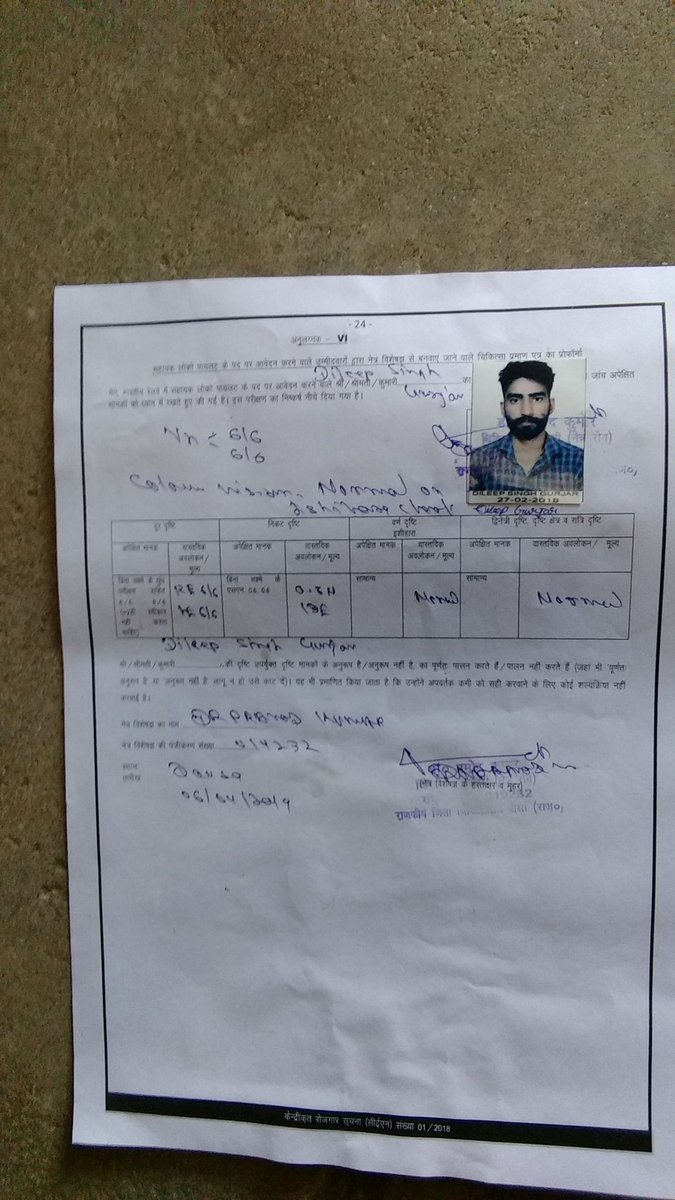 -24-
अनुलग्नक - VI
सहायक लोको पायलट के पद पर आवेदन करने वाले उम्मीदवारों द्वारा नेत्र विशेषज्ञ से बनवाए जाने वाले चिकित्सा प्रमाण पत्र का प्रोफॉर्मा
Dileep Singh
मैंने, भारतीय रेलवे में सहायक लोको पायलट के पद पर आवेदन करने वाले श्री/श्रीमती/कुमारी का जांच अपेक्षित
Gurjar
मानकों को ध्यान में रखते हुए की गई है। इस परीक्षण का निष्कर्ष नीचे दिया गया है।
6/6
6/6
Colour vision. Normal on
DILEEP SINGH GURJAR
27-02-2018
Dileep Gurjar
दूर दृष्टि निकट दृष्टि वर्ण दृष्टि द्विनेत्री दृष्टि, दृष्टि क्षेत्र व रात्रि दृष्टि
इशीहारा
अपेक्षित मानक वास्तविक अवलोकन/ मूल्य अपेक्षित मानक वास्तविक अवलोकन/ मूल्य अपेक्षित मानक वास्तविक अवलोकन/ मूल्य अपेक्षित मानक वास्तविक अवलोकन/ मूल्य
RE 6/6 सामान्य Normal सामान्य Normal
6/6
Dileep Singh Gurjar
श्री/श्रीमती/कुमारी ,की दृष्टि उपर्युक्त दृष्टि मानकों के अनुरूप है/अनुरूप नहीं है, का पूर्णतः पालन करते हैं/पालन नहीं करते हैं (जहां भी 'पूर्णतः
अनुरूप है' या 'अनुरूप नहीं है' लागू न हो उसे काट दें)। यह भी प्रमाणित किया जाता है कि उन्होंने अपवर्तक कमी को सही करवाने के लिए कोई शल्यक्रिया नहीं
करवाई है।
नेत्र विशेषज्ञ का नाम
नेत्र विशेषज्ञ की पंजीकरण संख्या 014232
स्थान Dausa
तारीख 06/04/2019
(नेत्र विशेषज्ञ के हस्ताक्षर व मुहर)
केन्द्रीकृत रोजगार सूचना (सीईएन) संख्या 01/2018